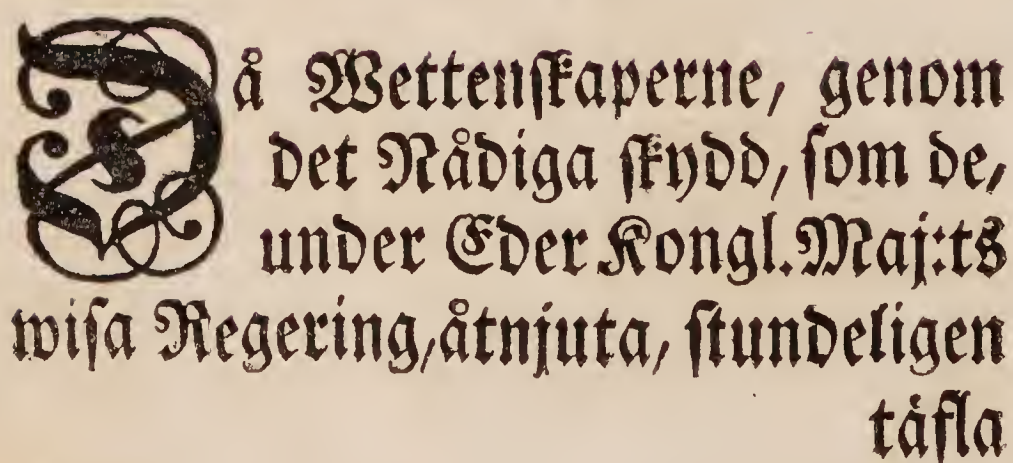 Då Wettenskaperne, genom
det Nådiga skydd, som de,
under Eder Kongl. Maj:ts
wisa Regering, åtnjuta, stundeligen
täfla